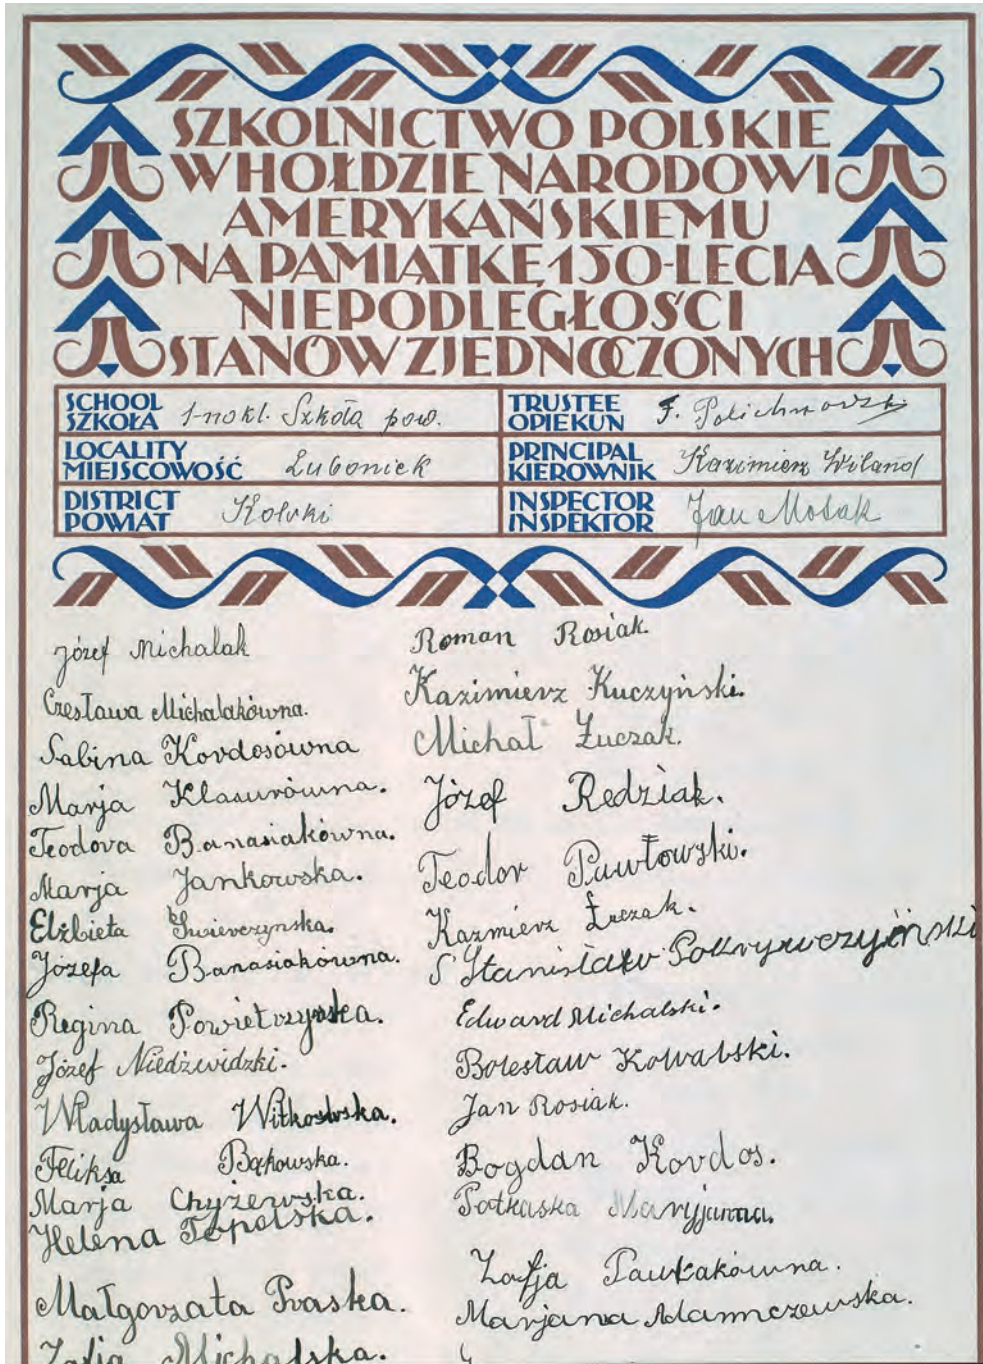 SZKOLNICTWO POLSKIE
W HOŁDZIE NARODOWI
AMERYKAŃSKIEMU
NA PAMIĄTKĘ 150-LECIA
NIEPODLEGŁOŚCI
STANÓW ZJEDNOCZONYCH
SCHOOL
SZKOŁA 1-no kl. Szkoła pow.
TRUSTEE
OPIEKUN F.
LOCALITY
MIEJSCOWOŚĆ Luboniek
PRINCIPAL
KIEROWNIK Kazimierz Wiland
DISTRICT
POWIAT Kolski
INSPECTOR
INSPEKTOR Jan
Józef Michalak
Czesława Michalakówna.
Sabina Kordosówna
Marja Klasurówna.
Teodora Banasiakówna.
Marja Jankowska.
Elżbieta
Józefa Banasiakówna.
Regina Powietrzyńska.
Józef Niedźwidzki.
Władysława Witkowska.
Feliksa Bąkowska.
Marja Chyżewska.
Helena Topolska.
Małgorzata Praska.
Zofja Michalska.
Roman Rosiak.
Kazimierz Kuczyński.
Michał Łuczak.
Józef Redziak.
Teodor Pawłowski.
Kazmierz Łuczak.
Stanisław Pokrywczyński
Edward Michalski.
Bolesław Kowalski.
Jan Rosiak.
Bogdan Kordos.
Maryjanna.
Zofja Pawlakówna.
Marjana Adamczewska.